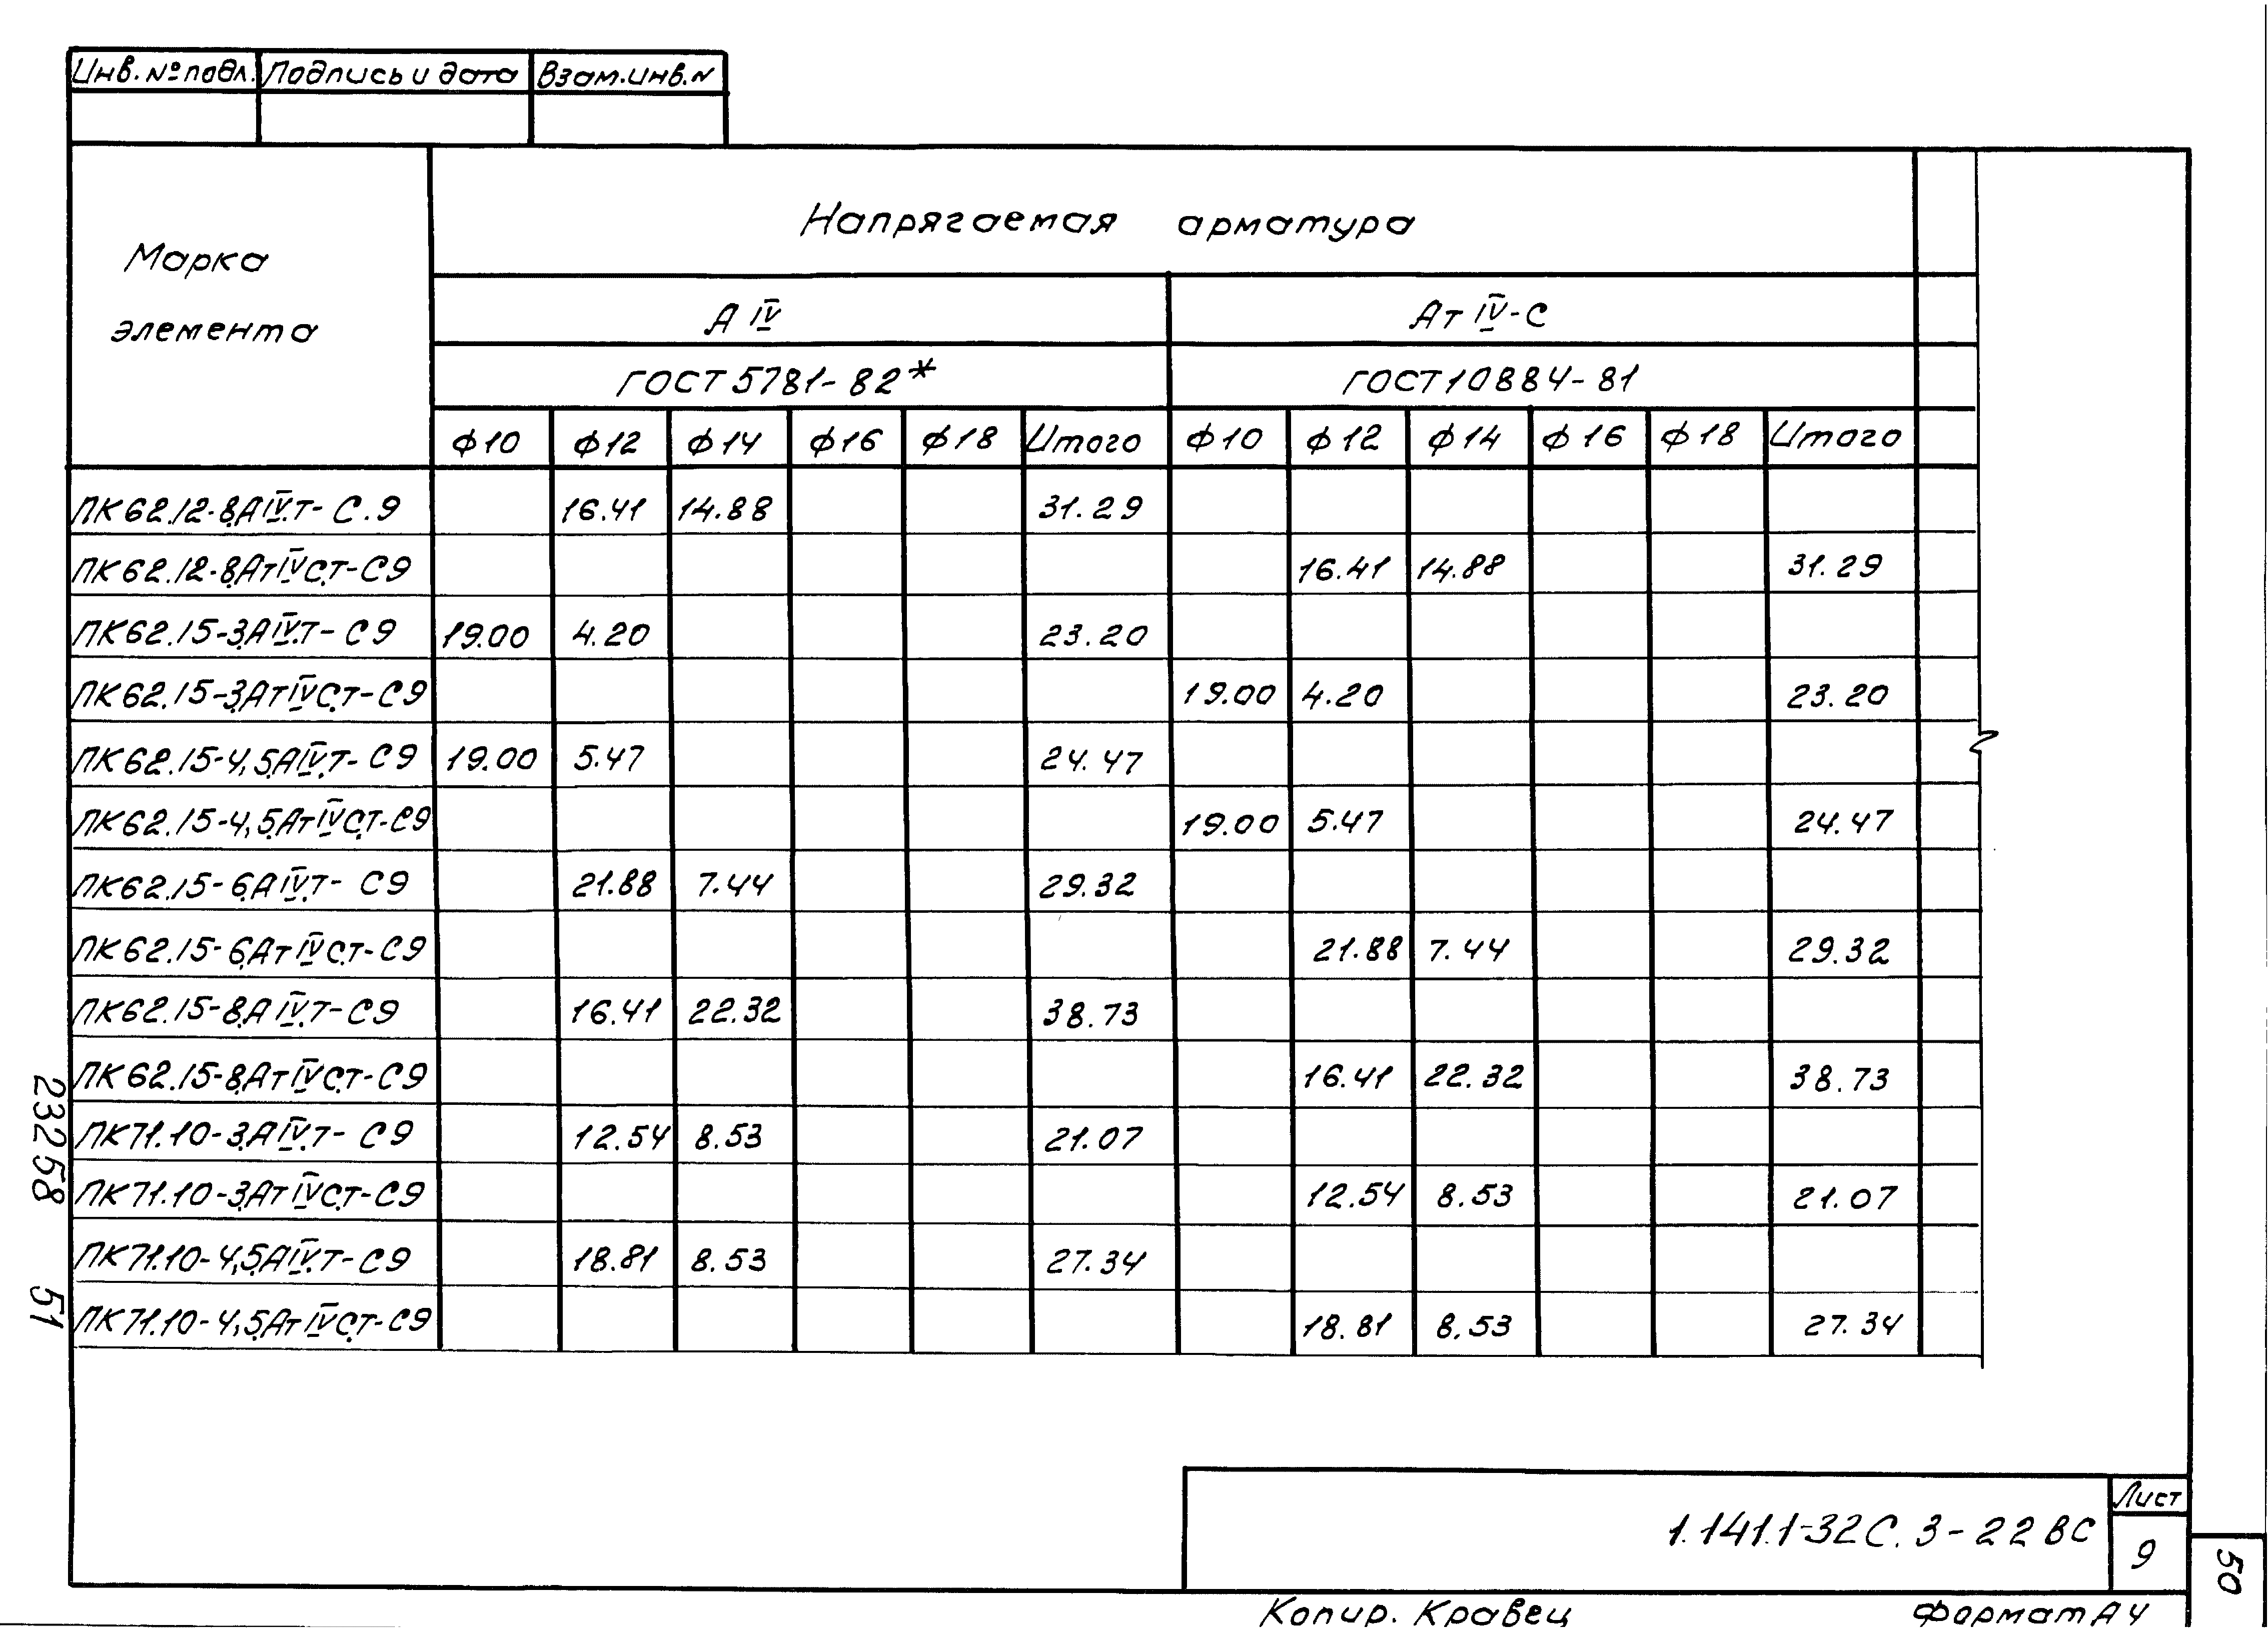 Инв. № подл. Подпись и дата Взам. инв. N
Марка элемента
Напрягаемая арматура
А IV Ат IV-С
ГОСТ 5781-82* ГОСТ 10884-81
Ф10 Ф12 Ф14 Ф16 Ф18 Итого Ф10 Ф12 Ф14 Ф16 Ф18 Итого
ПК62.12-8АIVт-С.9 16.41 14.88 31.29
ПК62.12-8АтIVСт-С9 16.41 14.88 31.29
ПК62.15-3АIVт-С9 19.00 4.20 23.20
ПК62.15-3АтIVСт-С9 19.00 4.20 23.20
ПК62.15-4,5АIVт-С9 19.00 5.47 24.47
ПК62.15-4,5АтIVСт-С9 19.00 5.47 24.47
ПК62.15-6АIVт-С9 21.88 7.44 29.32
ПК62.15-6АтIVСт-С9 21.88 7.44 29.32
ПК62.15-8АIVт-С9 16.41 22.32 38.73
ПК62.15-8АтIVСт-С9 16.41 22.32 38.73
ПК71.10-3АIVт-С9 12.54 8.53 21.07
ПК71.10-3АтIVСт-С9 12.54 8.53 21.07
ПК71.10-4,5АIVт-С9 18.81 8.53 27.34
ПК71.10-4,5АтIVСт-С9 18.81 8.53 27.34
23268 51
1.141.1-32С.3-22ВС
Лист
9
50
Копир. Кравец Формат А4